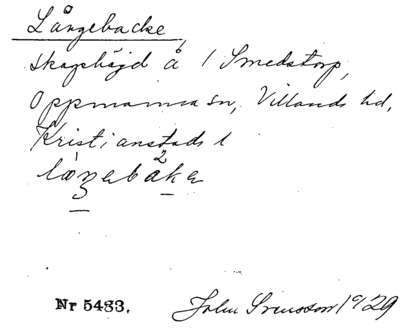 Långebacke,
skogshöjd å 1 Smedstorp,
Oppmanna sn, Villands hd,
Kristianstads l
Nr 5483. John Svensson 1929